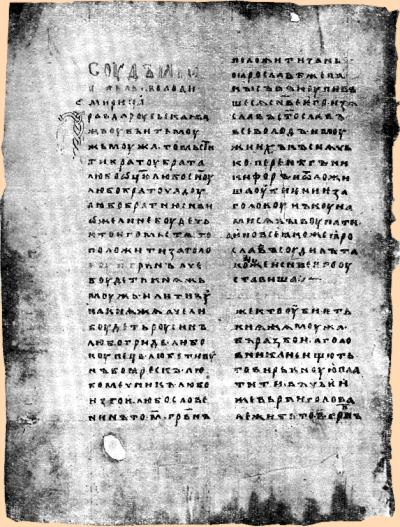 соудъ ꙗро
славль володи
мирица
равда роусьскаꙗ а
жь оубиѥть моу
жь моужа · то мьсти
ти братоу брата
любо ѡцю любо сноу
любо братоучадоу
любо братню снви
ѡже ли не боудеть
кто ѥго мьстѧ · то
положити за голо
воу п҃ грвнъ аче
боудеть кнѧжь
моужь · или тивоу
на кнѧжа · аче ли
боудеть роусинъ
любо гридь · любо
коупець · любо тивоу
нъ боꙗрескъ · лю
бо мечникъ · любо
изгои · любо слове
нинъ то · м҃ · грвнъ
положити за нь ·
по ꙗрославѣ же па
кы съвъкоупивъ
шесѧ снве ѥго · изѧ
славъ · стославъ ·
всеволодъ · и моу
жи ихъ · къснѧчь
ко · перенѣгъ · ни
кифоръ · и ѿложи
ша оубиѥниѥ за
головоу · нъ коуна
ми сѧ выкоупати
а ино все ꙗкоже ꙗро
славъ соудилъ та
коже и снве ѥго оу
ставиша
же кто оубиѥть
кнѧжа моужа ·
въ разбои · а голо
вника не ищють
то вирьвноую пла
тити · въ чьѥи
же вьрви голова
лежить то · п҃ · грвнъ